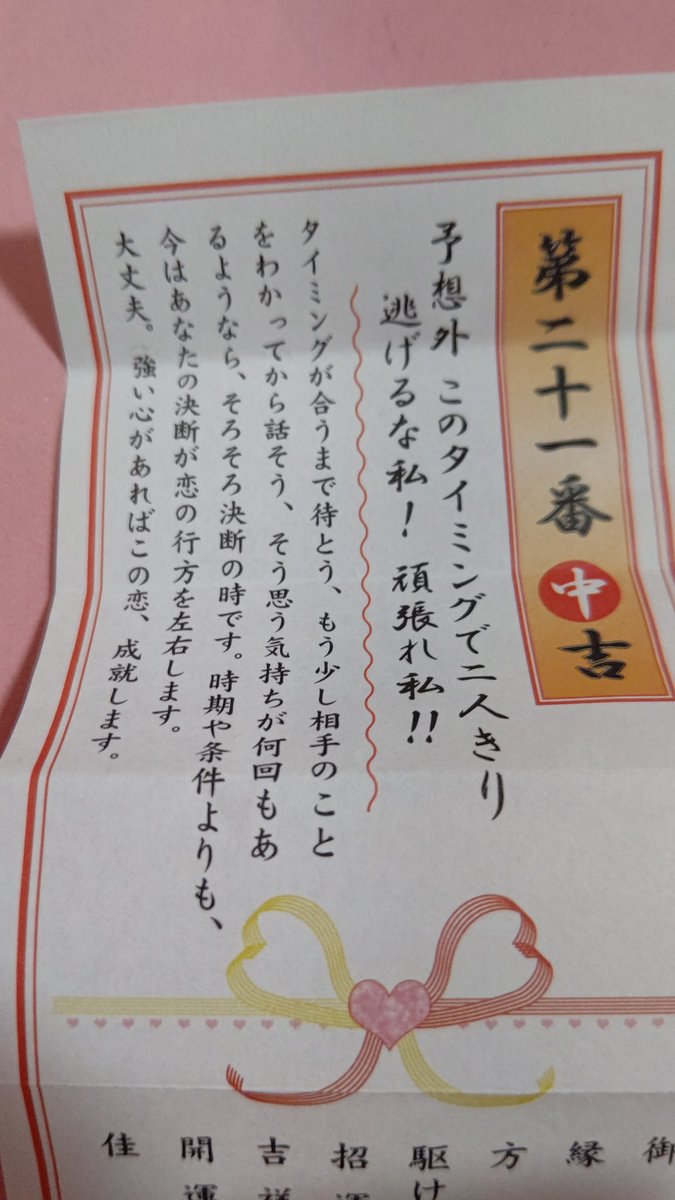 第二十一番 中吉
予想外 このタイミングで二人きり
逃げるな私! 頑張れ私!!
タイミングが合うまで待とう、もう少し相手のこと
をわかってから話そう、そう思う気持ちが何回もあ
るようなら、そろそろ決断の時です。時期や条件よりも、
今はあなたの決断が恋の行方を左右します。
大丈夫。強い心があればこの恋、成就します。
御
縁
方
駆け
招運
吉祥
開運
佳